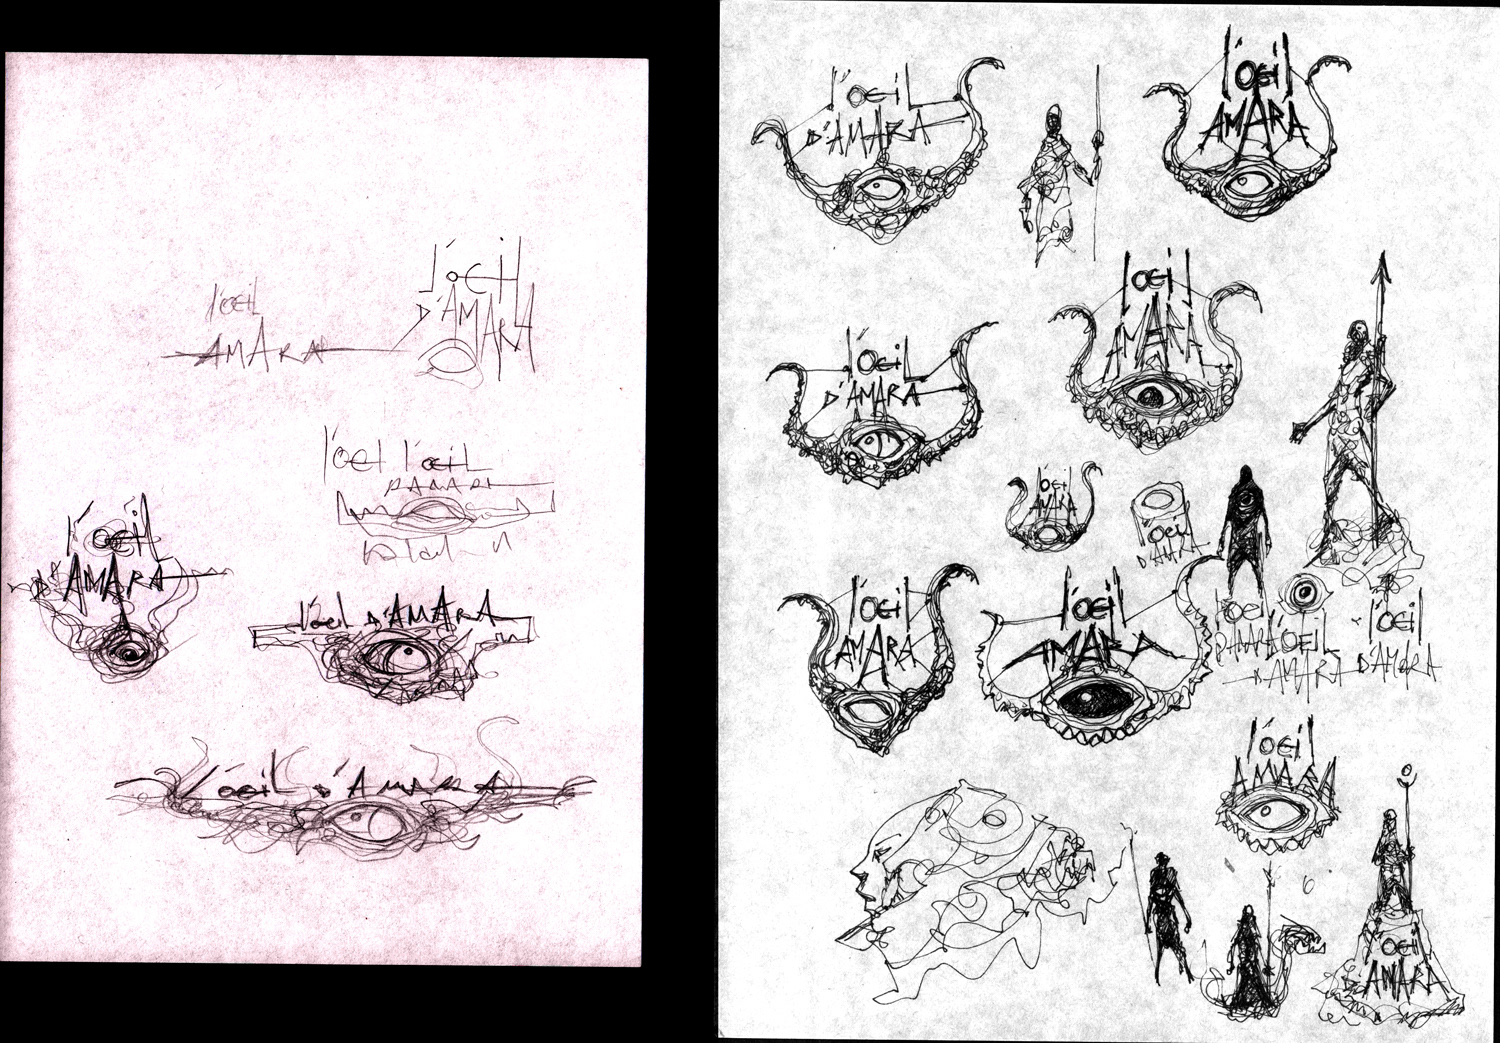 l'oeil
AMARA
l'oeil
D'AMARA
l'oeil l'oeil
DAMARA
l'oeil
D'AMARA
l'oeil D'AMARA
l'oeil D'AMARA
l'oeil
D'AMARA
l'oeil
AMARA
l'oeil
AMARA
l'oeil
D'AMARA
l'oeil
AMARA
l'oeil
D'AMARA
l'oeil
AMARA
l'oeil
AMARA
l'oeil
DAMARA
l'OEIL
AMARA
l'oeil
D'AMARA
l'oeil
AMARA
l'oeil
D'AMARA